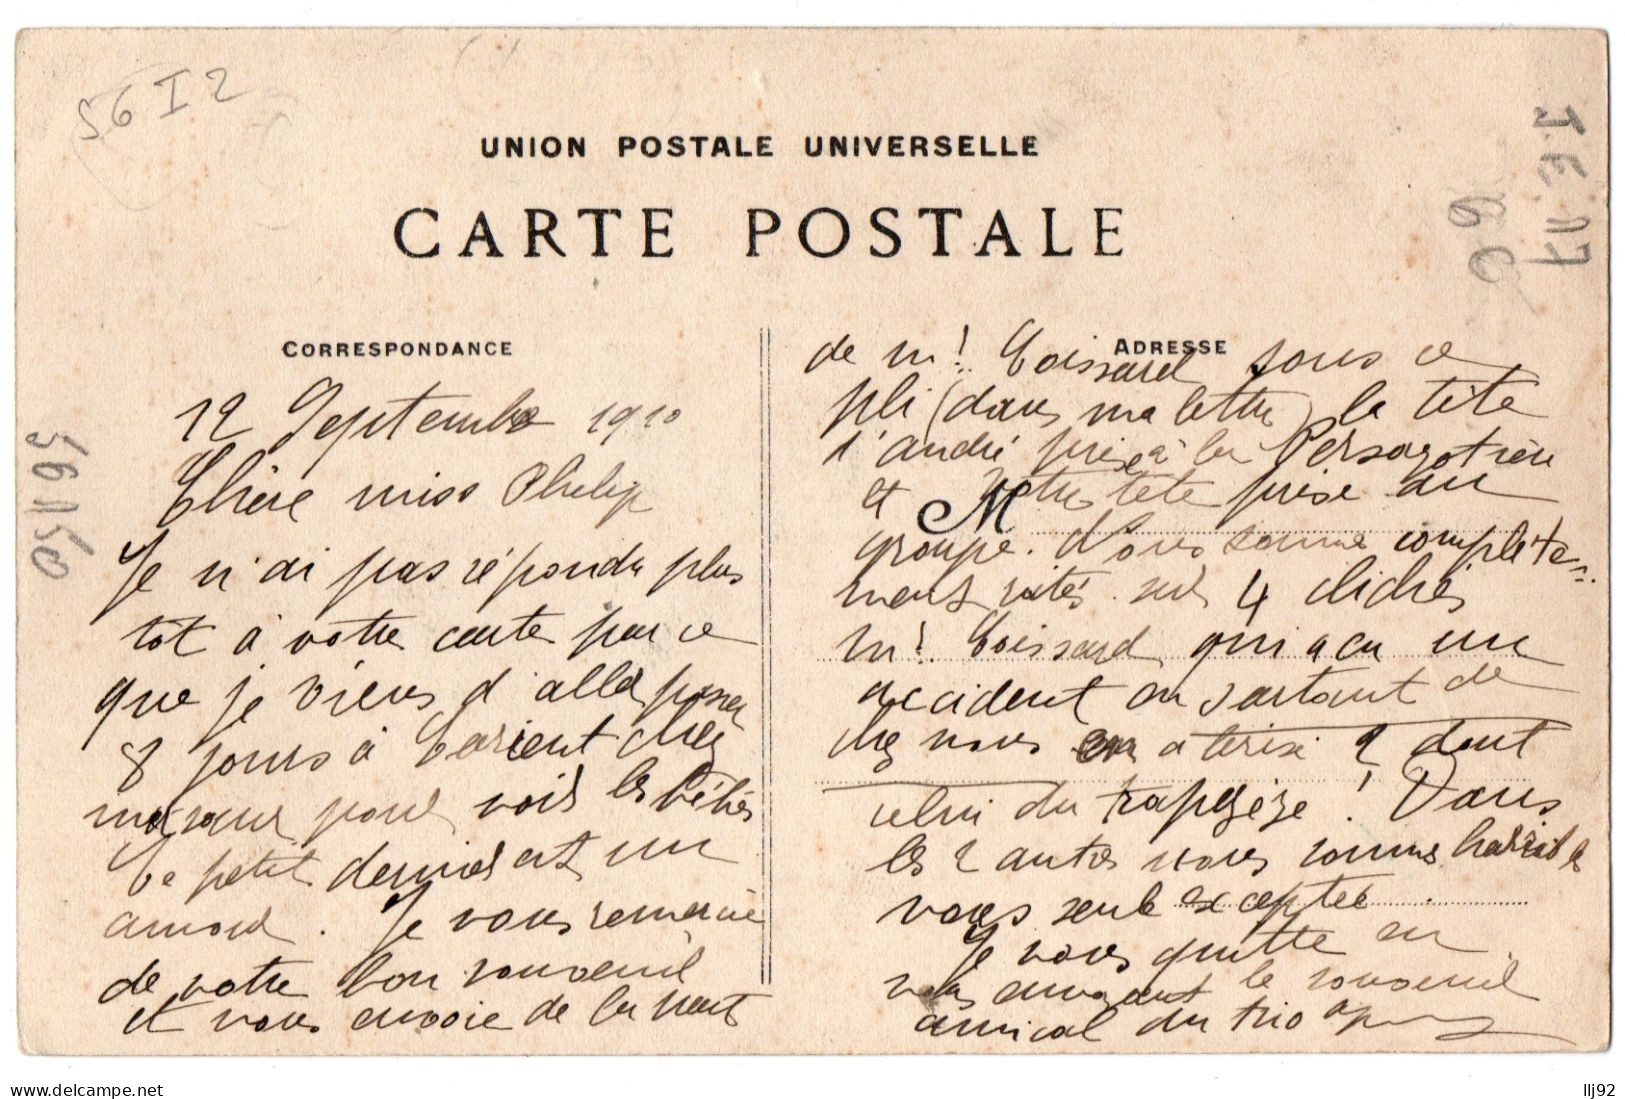 56 I 2
UNION POSTALE UNIVERSELLE
CARTE POSTALE
J.E. 17
56 150
CORRESPONDANCE
12 Septembre 1910
Chère miss Philip
Je n'ai pas répondu plus
tôt à votre carte par ce
que je viens d'aller passer
8 jours à Lorient chez
ma sœur pour voir les bébés
Le petit dernier est un
amour. Je vous remercie
de votre bon souvenir
et vous envoie de la part
ADRESSE
de Mr. Coissard sous ce
pli (dans ma lettre) la tête
d'andré prise à la Persagotière
M
et votre tête prise au
groupe. Nous sommes complète-
ment ratés. sur 4 clichés
Mr. Coissard qui a eu un
accident en sortant de
chez nous en a brisé 2 dont
celui du trapèze! Dans
les 2 autres nous sommes horribles
vous seule exceptée.
Je vous quitte en
vous envoyant le souvenir
amical du trio
delcampe.net
llj92